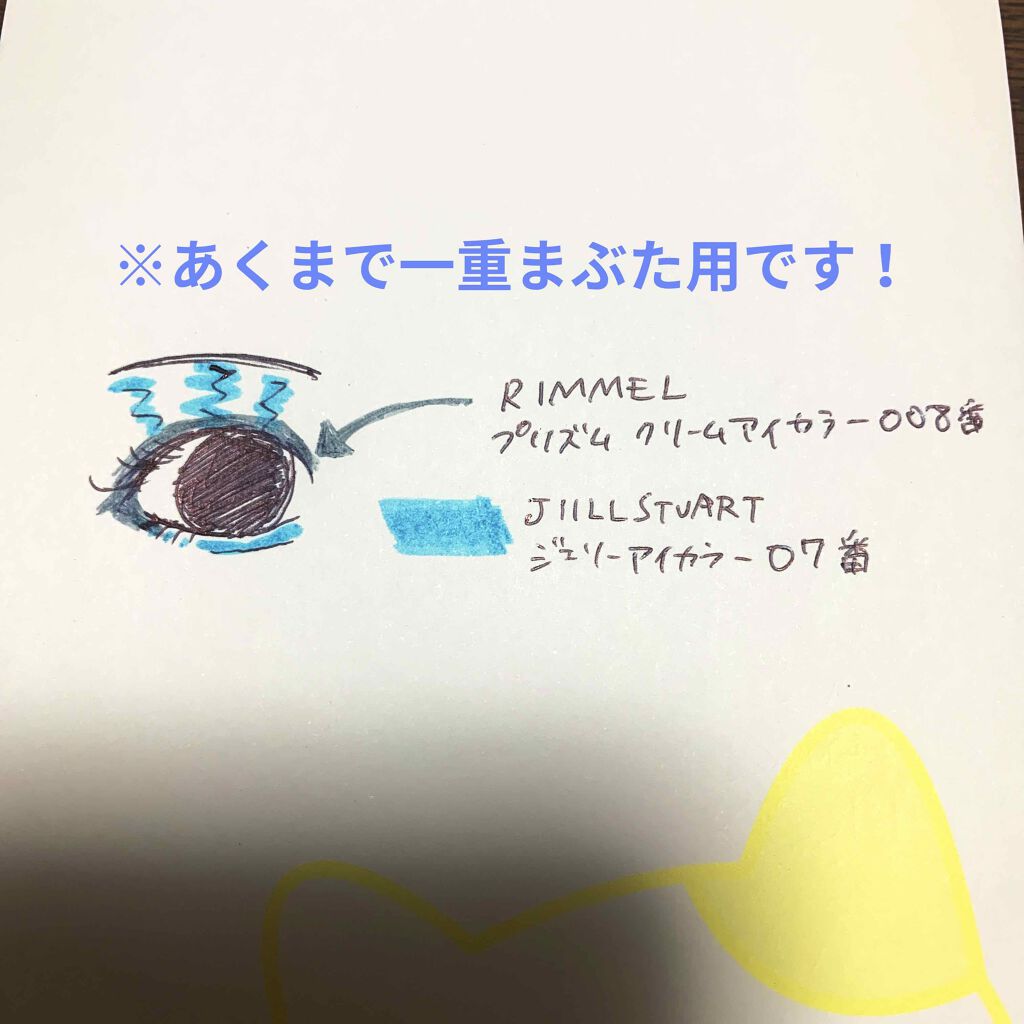 ※あくまで一重まぶた用です！
RIMMEL
プリズム クリームアイカラー008番
JIILLSTUART
ジェリーアイカラー07番